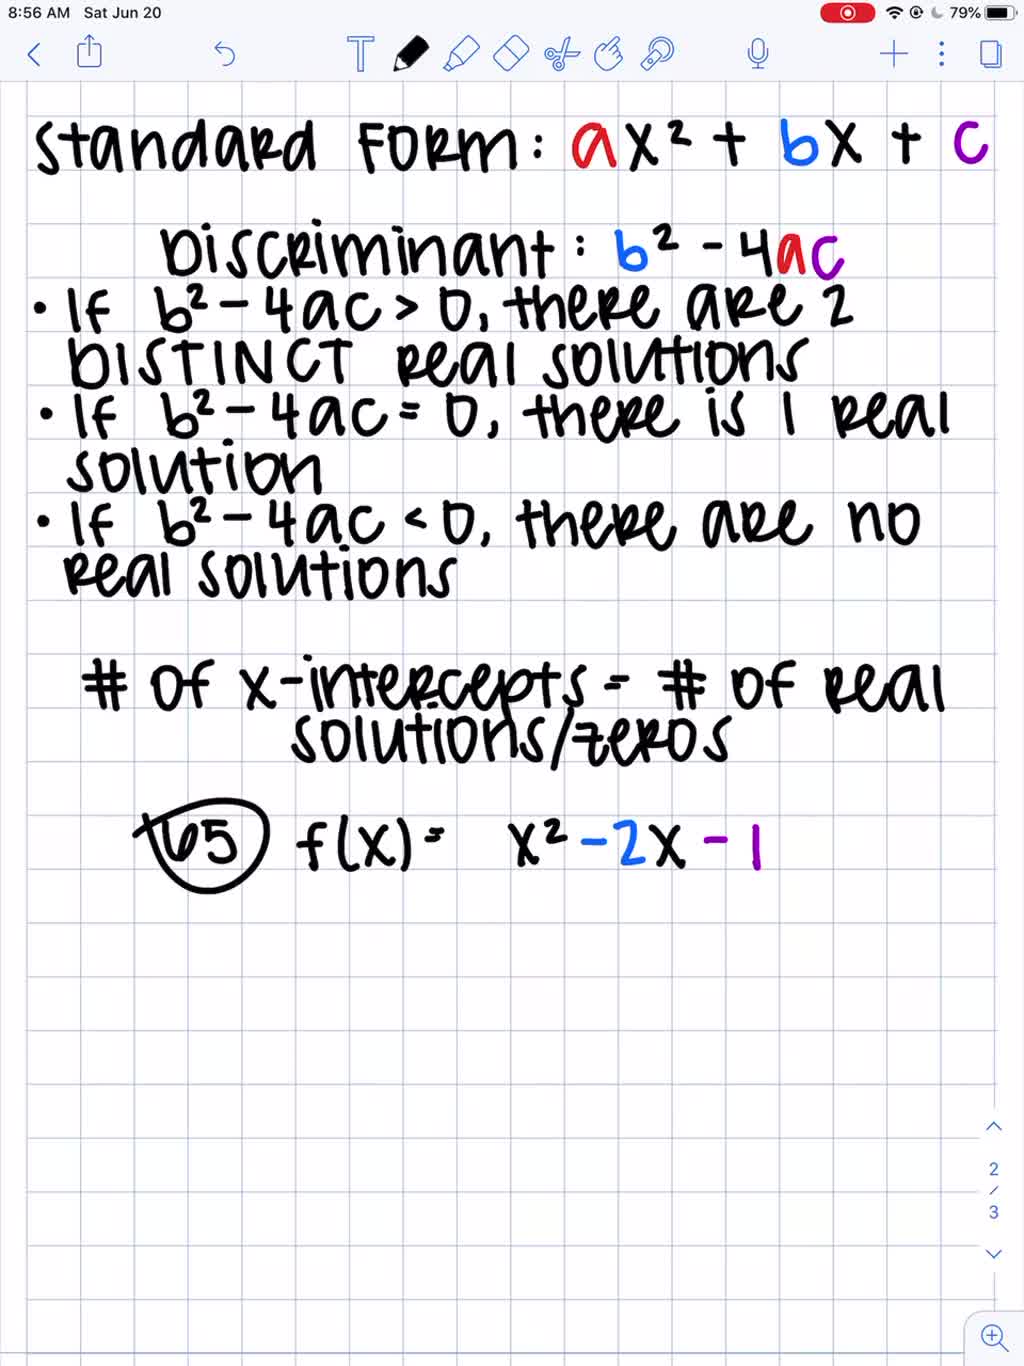 8:56 AM Sat Jun 20 79%
T
Standard Form: ax² + bx + c
Discriminant: b² - 4ac
• If b² - 4ac > 0, there are 2
DISTINCT real solutions
• If b² - 4ac = 0, there is 1 real
solution
• If b² - 4ac < 0, there are no
real solutions
# of x-intercepts = # of real
solutions/zeros
65 f(x) = x² - 2x - 1
2
/
3